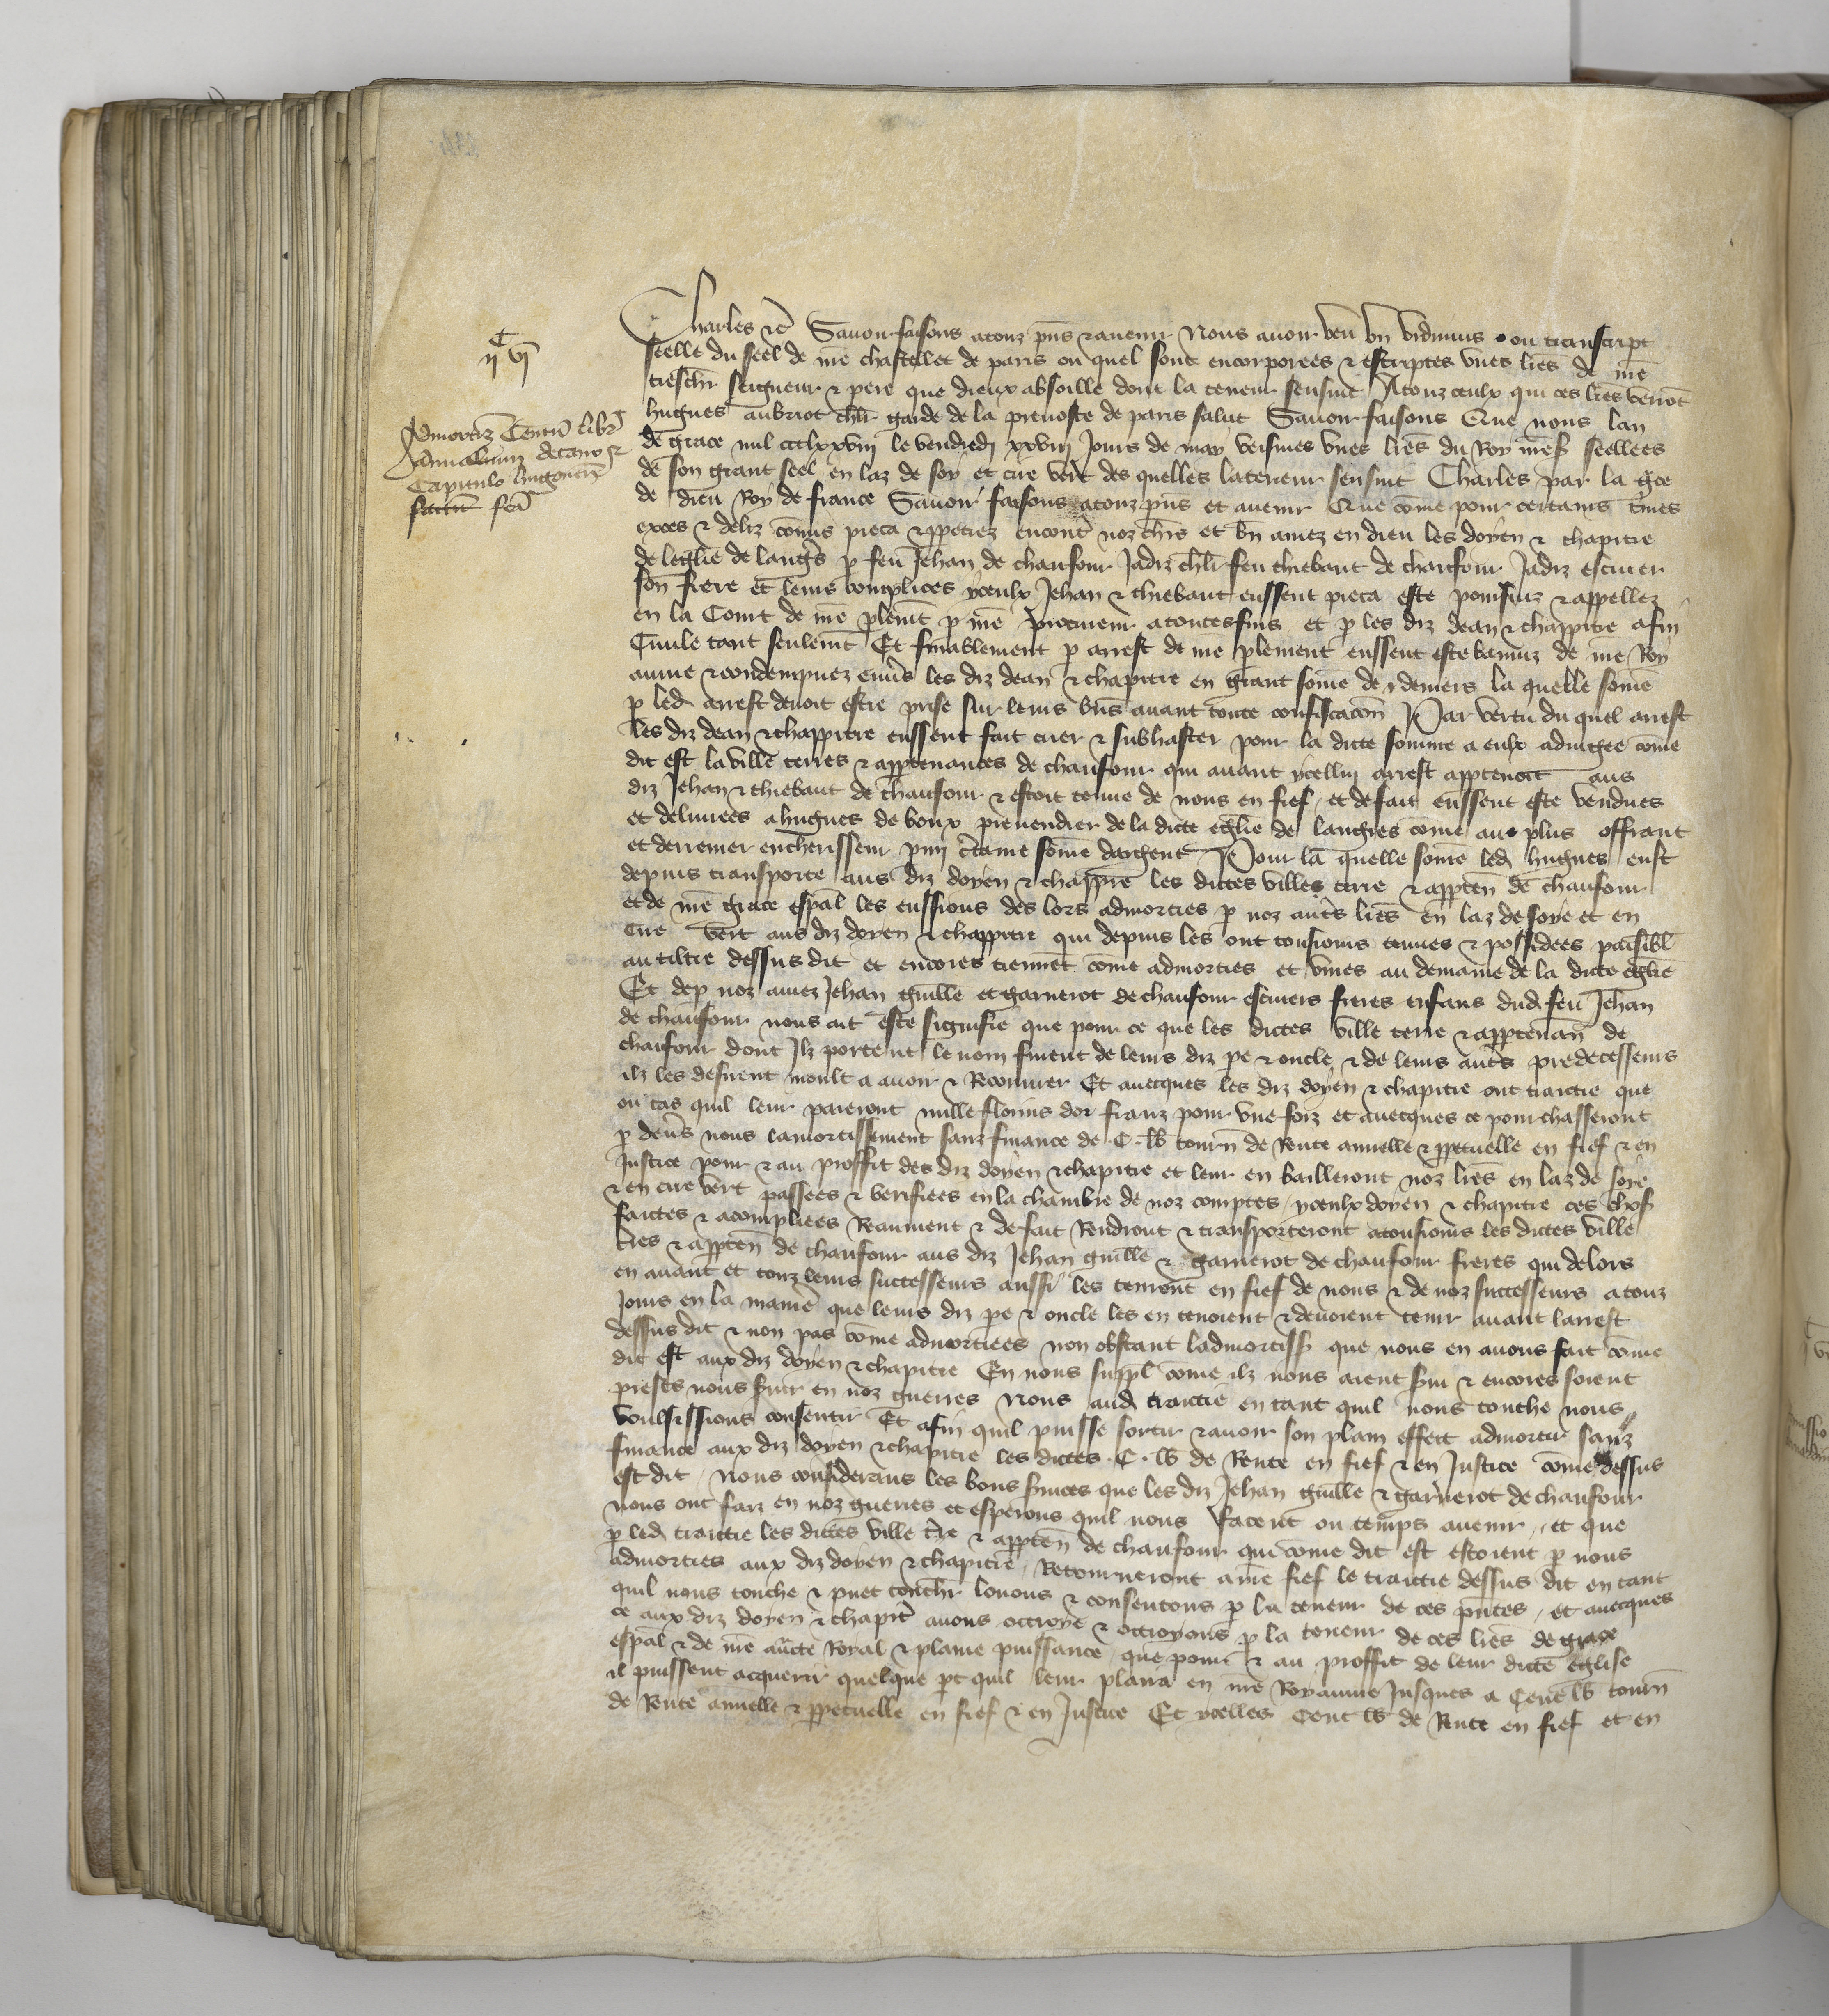 C
ii vj
Admortiz Centū libr
Annualiū decano &
Capitulo lingonen̄
factū scā
Charles &c̄ Sauoir faisons a touz pn̄s & auenir Nous auoir veu vn vidimus ou transcript
seelle du seel de nr̄e chastellet de paris ou quel sont encorporees & escriptes vnes lr̄es de nr̄e
treschr̄ seigneur & pere que dieux absoille dont la teneur sensuit A touz ceulx qui ces lr̄es verrōt
hugues aubriot chlr̄ garde de la preuoste de paris salut Sauoir faisons Que nous lan
de grace mil ccclxxviij le vendredj xxviij Jours de may veismes vnes lr̄es du Roy nr̄e s̄ seellees
de son grant seel en laz de soy et cire vert des quelles la teneur sensuit Charles par la gr̄ce
de dieu Roy de france Sauoir faisons a touz pn̄s et auenir Que cōme pour certains c̄mes
exces & deliz cōmis pieca & pp̄etrez encont̄ noz chr̄s et bn̄ amez en dieu les doyen & chapitre
de leglīe de langr̄s p̄ feu Jehan de chaufour Jadiz chlr̄ feu thiebaut de chaufour Jadiz escuier
son frere et leurs complices yceulx Jehan & thiebaut eussent pieca este poursuiz & appellez
en la Court de nr̄e plemt̄ p̄ nr̄e procureur a toutes fins et p̄ les diz dean & chappitre a fin
Ciuile tant seulemt̄ Et finablement p̄ arrest de nr̄e plement eussent este baniz de nr̄e Roy
aume & condempnez enūs les diz dean & chapitre en grant sōme de deniers la quelle sōme
p̄ led̄ arrest deuoit estre prise sur leurs biēs auant toute confiscacōn Par vertu du quel arrest
les diz dean & chappitre eussent fait crier & subhaster pour la dicte somme a eulx adiugee cōme
dit est la ville terres & appten̄ances de chaufour qui auant ycelluj arrest apptenoit aus
diz Jehan & thiebaut de chaufour & estoit tenue de nous en fief et de fait eussent este vendues
et deliurees a hugues de voux preuendier de la dicte eglīe de langres cōme au plus offrant
et derrenier encherisseur p̄mi c̄taine sōme dargent Pour la quelle sōme led̄ hugues eust
depuis transporte aus diz doyen & chappr̄e les dictes villes terre & apptēn de chaufour
et de nr̄e grace esp̄al les eussions des lors admorties p̄ noz aut̄s lr̄es en laz de soye et en
cire vert aus diz doyen & chappitre qui depuis les ont tousiours tenues & possidees paisibl̄
au tiltre dessus dit et encores tiennēt cōme admorties et vnies au demaine de la dicte eglīe
Et dep̄ noz amez Jehan guill̄e et garnerot de chaufour escuiers freres enfans dud̄ feu Jehan
de chaufour nous ait este signifie que pour ce que les dictes ville terre & apptenan̄ de
chaufour dont Jlz portent le nom furent de leurs diz pe & oncle & de leurs aut̄s predecesseurs
ilz les desirent moult a auoir & Recouurer Et auecques les diz doyen & chapitre ont traictie que
ou cas quil leur paieront mille florins dor franz pour vne foiz et auecques ce pourchasseront
p̄ deūs nous lamortissement sanz finance de C lb̄ tourn̄ de Rente annuelle & pp̄etuelle en fief & en
Justice pour & au proffit des diz doyen & chapitre et leur en bailleront noz lr̄es en laz de soye
& en cire vert passees & verifiees en la chambre de noz comptes yceulx doyen & chapitre ces chos̄
faictes & acomplies Reaument & de fait Rendront & transporteront a tousiours les dictes ville
t̄res & apptēn de chaufour aus diz Jehan guill̄e & garnerot de chaufour freres qui de lors
en auant et touz leurs successeurs aussi les tenrōt en fief de nous & de noz successeurs a touz
Jours en la manie̅ que leurs diz pe & oncle les en tenoient & deuoient tenir auant larrest
dessus dit & non pas cōme admorties non obstant ladmortiss̄ que nous en auons fait cōme
dit est aux diz doyen & chapitre En nous suppl̄ cōme ilz nous aient s̄ui & encores soient
prests nous s̄uir en noz guerres Nous aud̄ traictie en tant quil nous touche nous
voulsissions consentir Et afin quil puisse sortir & auoir son plain effect admortir sanz
finance aux diz doyen & chapitre les dictes C lb̄ de Rente en fief & en Justice cōme dessus
est dit Nous considerans les bons s̄uices que les diz Jehan guill̄e & garnerot de chaufour
nous ont faiz en noz guerres et esperons quil nous facent ou temps auenir et que
p̄ led̄ traictie les dictes ville t̄re & apptēn de chaufour qui cōme dit est estoient p̄ nous
admorties aux diz doyen & chapitre Retourneront a nr̄e fief le traictie dessus dit en tant
quil nous touche & puet touchr̄ louons & consentons p̄ la teneur de ces pn̄tes et auecques
ce aux diz doyen & chapit̄ auons octroye & octroyons p̄ la teneur de ces lr̄es de grace
esp̄al & de nr̄e auct̄te Royal & plaine puissance que pour & au proffit de leur dicte eglise
il puissent acquerir quelque pt quil leur plaira en nr̄e Royaume Jusques a Cent lb̄ tourn̄
de Rente annuelle & pp̄etuelle en fief & en Justice Et ycelles Cent lb̄ de Rente en fief et en